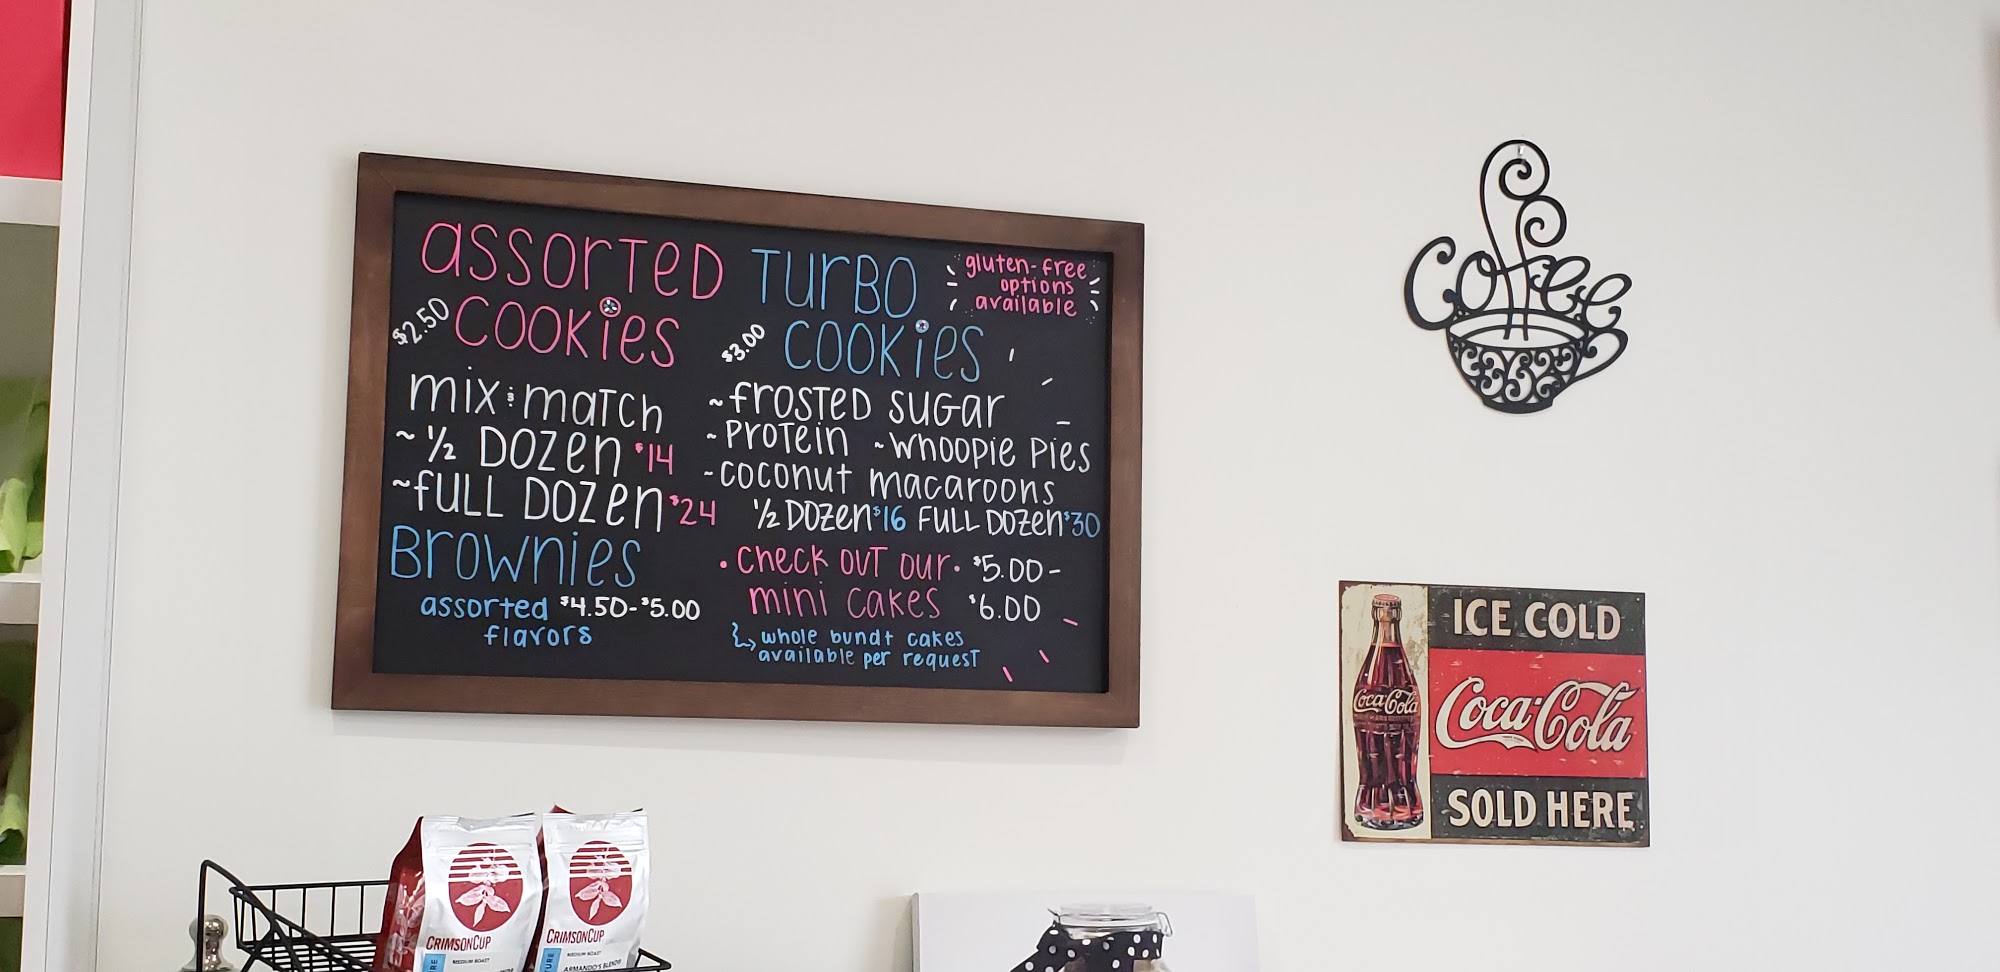 assorted
cookies
$2.50
mix & match
~ 1/2 Dozen $14
~ full Dozen $24
Brownies
assorted $4.50-$5.00
flavors
Turbo
cookies
$3.00
gluten-free
options
available
~frosted sugar
~protein ~whoopie pies
~coconut macaroons
1/2 Dozen $16 full Dozen $30
• check out our • $5.00-
mini cakes $6.00
whole bundt cakes
available per request
Coffee
ICE COLD
Coca-Cola
Coca-Cola
SOLD HERE
CRIMSONCUP
MEDIUM ROAST
CRIMSONCUP
MEDIUM ROAST
ARMANDO'S BLEND